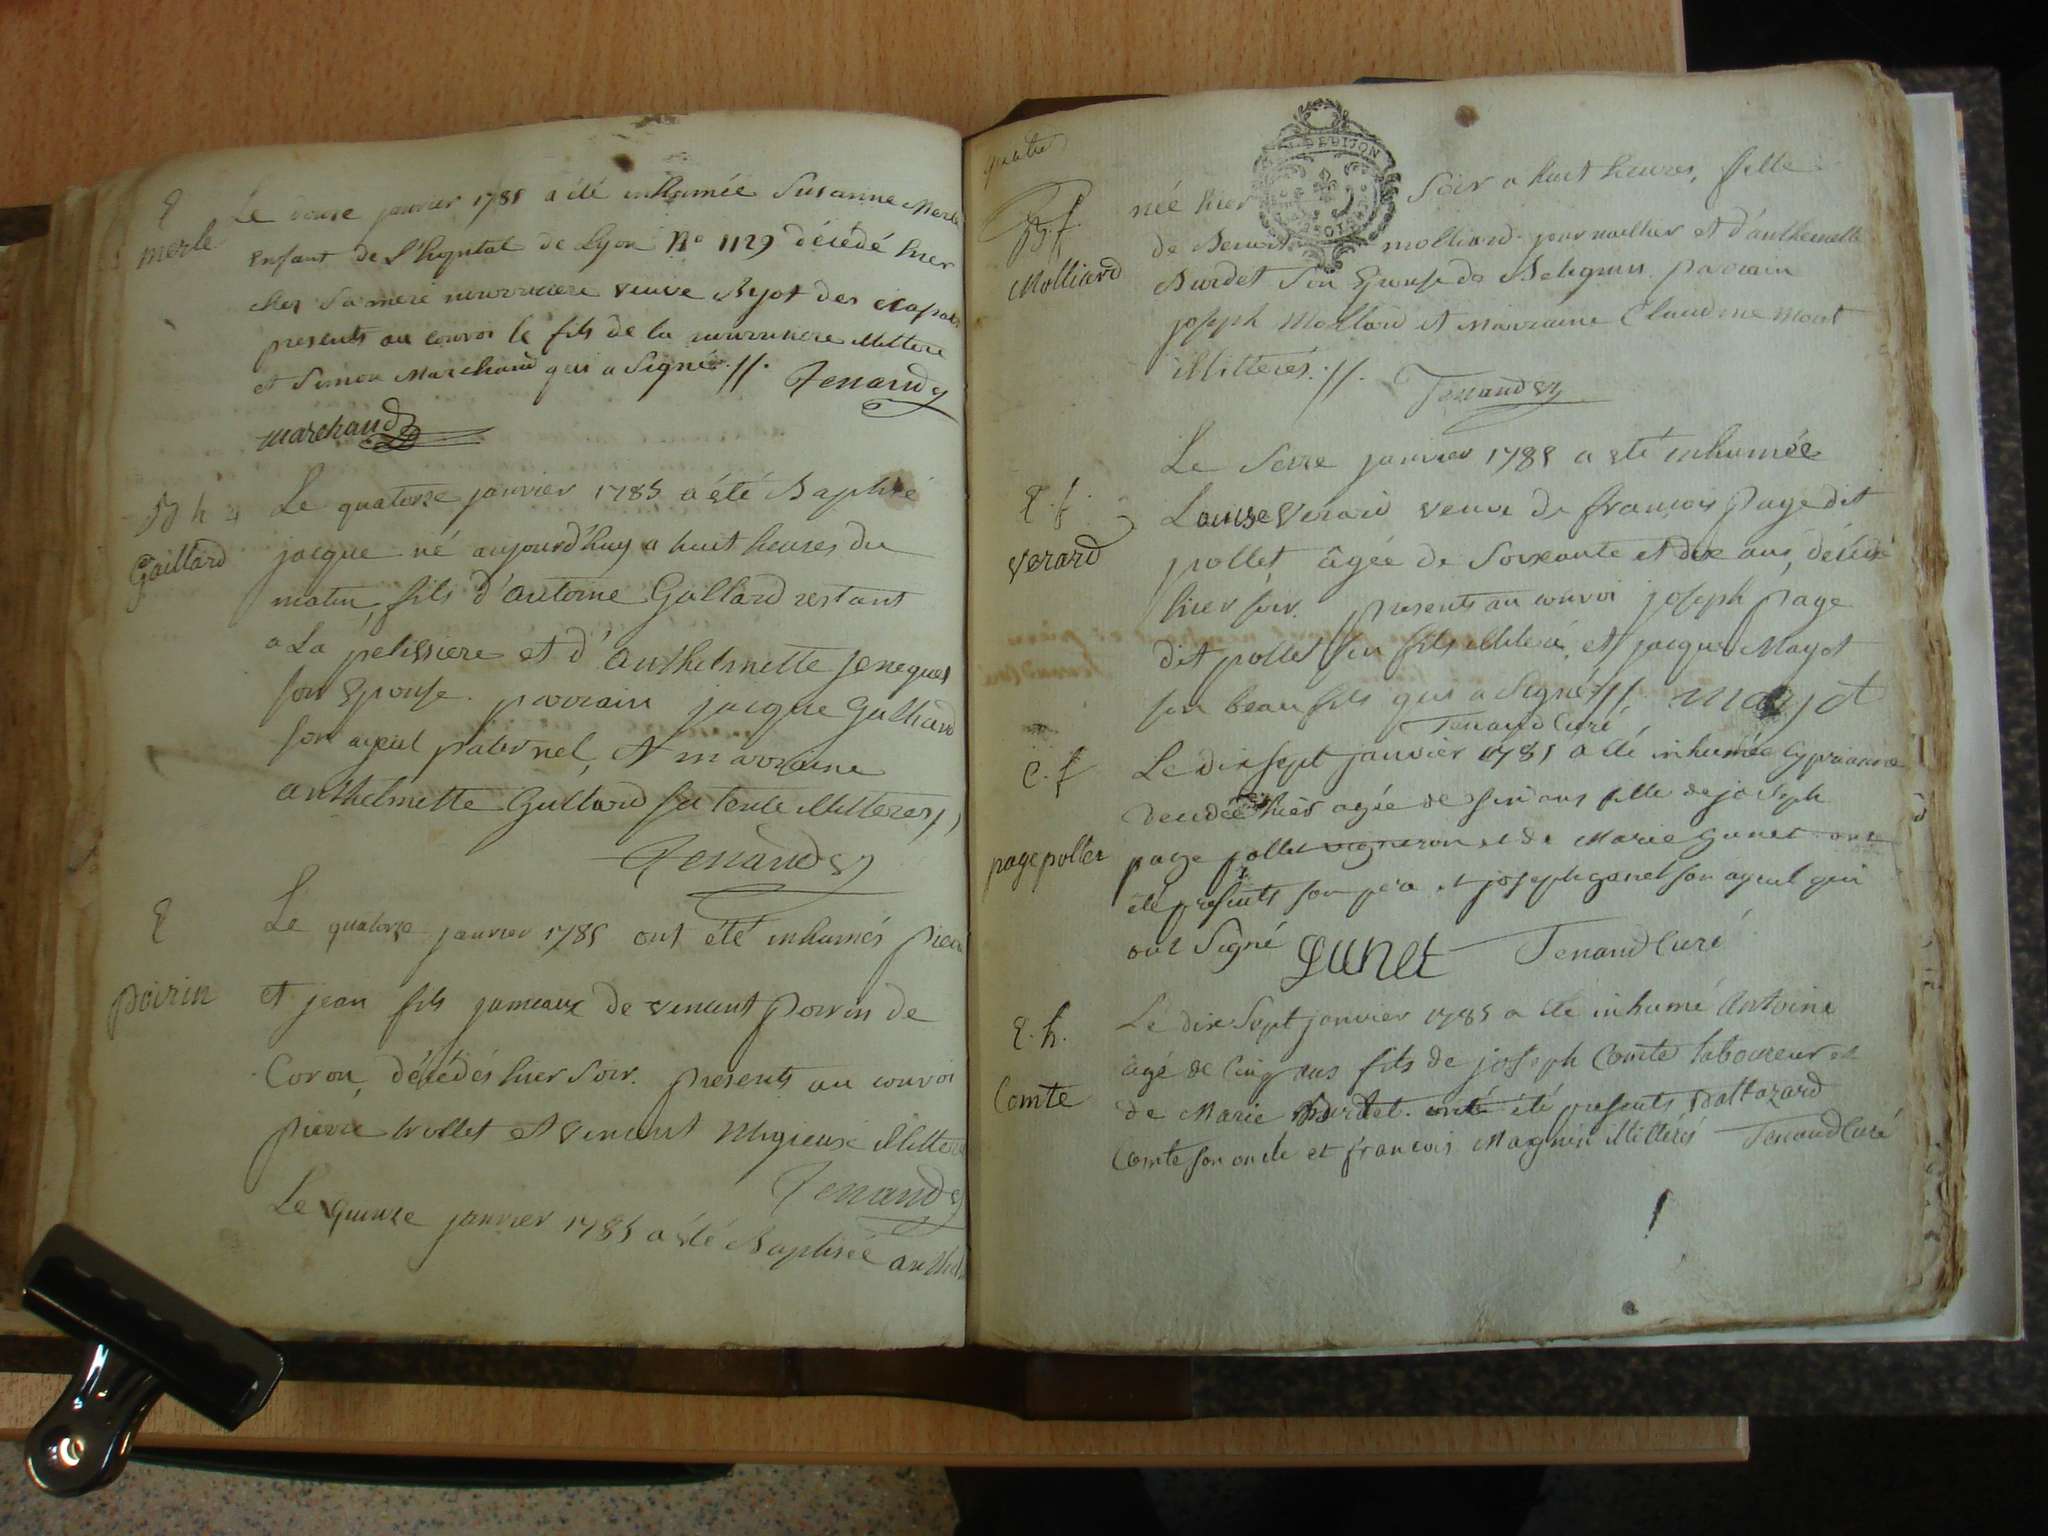 E
merle
Le douse janvier 1785 a été inhumée Susanne Merle
enfant de l'hopital de Lyon No 1129 décédé hier
ches sa mere nourriciere veuve Byot des
presents au convoi le fils de la nourriciere illittere
et Simon Marchand qui a signé .//. Tenand
marchand
B h
Gaillard
Le quatorze janvier 1785 a été Baptisé
jacque né aujourd'huy a huit heures du
matin, fils d'antoine Gallard restant
a La pelissiere et d'anthelmette
son Epouse. parrain jacque Galliard
son ayeul paternel, et marraine
anthelmette Gallard sa tente illitteres
Tenand
E
poirin
Le quatorze janvier 1785 ont été inhumés
et jean fils jumeaux de vincent poirin de
Coron, décédés hier soir. presents au convoi
pierre trollet et vincent Migieux illittere
Tenand
Le quinze janvier 1785 a été Baptisée
quatre
DE DIJON
B f
Molliard
née hier soir a huit heures, fille
de Benoit molliard journaillier et d'anthemette
Burdet son Epouse de parrain
joseph Mollard et Marraine Claudine Mont
illitterés .//. Tenand
E. f.
verard
Le Seize janvier 1785 a été inhumée
Louise verard veuve de francois page dit
pollet âgée de soixante et dix ans, décédé
hier soir. presents au convoi joseph page
dit pollet son fils illiteré, et jacque Mayot
son beau fils qui a signé .//. mayot
Tenand Curé
E. f
page pollet
Le dix sept janvier 1785 a été inhumée Cyprianne
decedée hier agée de six ans fille de joseph
page pollet vigneron et de Marie Gunet ont
été presents son pere et joseph gunet son ayeul qui
ont signé Gunet Tenand Curé
E. h.
Comte
Le dix Sept janvier 1785 a été inhumé Antoine
agé de Cinq ans fils de joseph Comte laboureur et
de Marie Burdet. ont été presents Baltazard
Comte son oncle et francois Magnin illitterés Tenand Curé